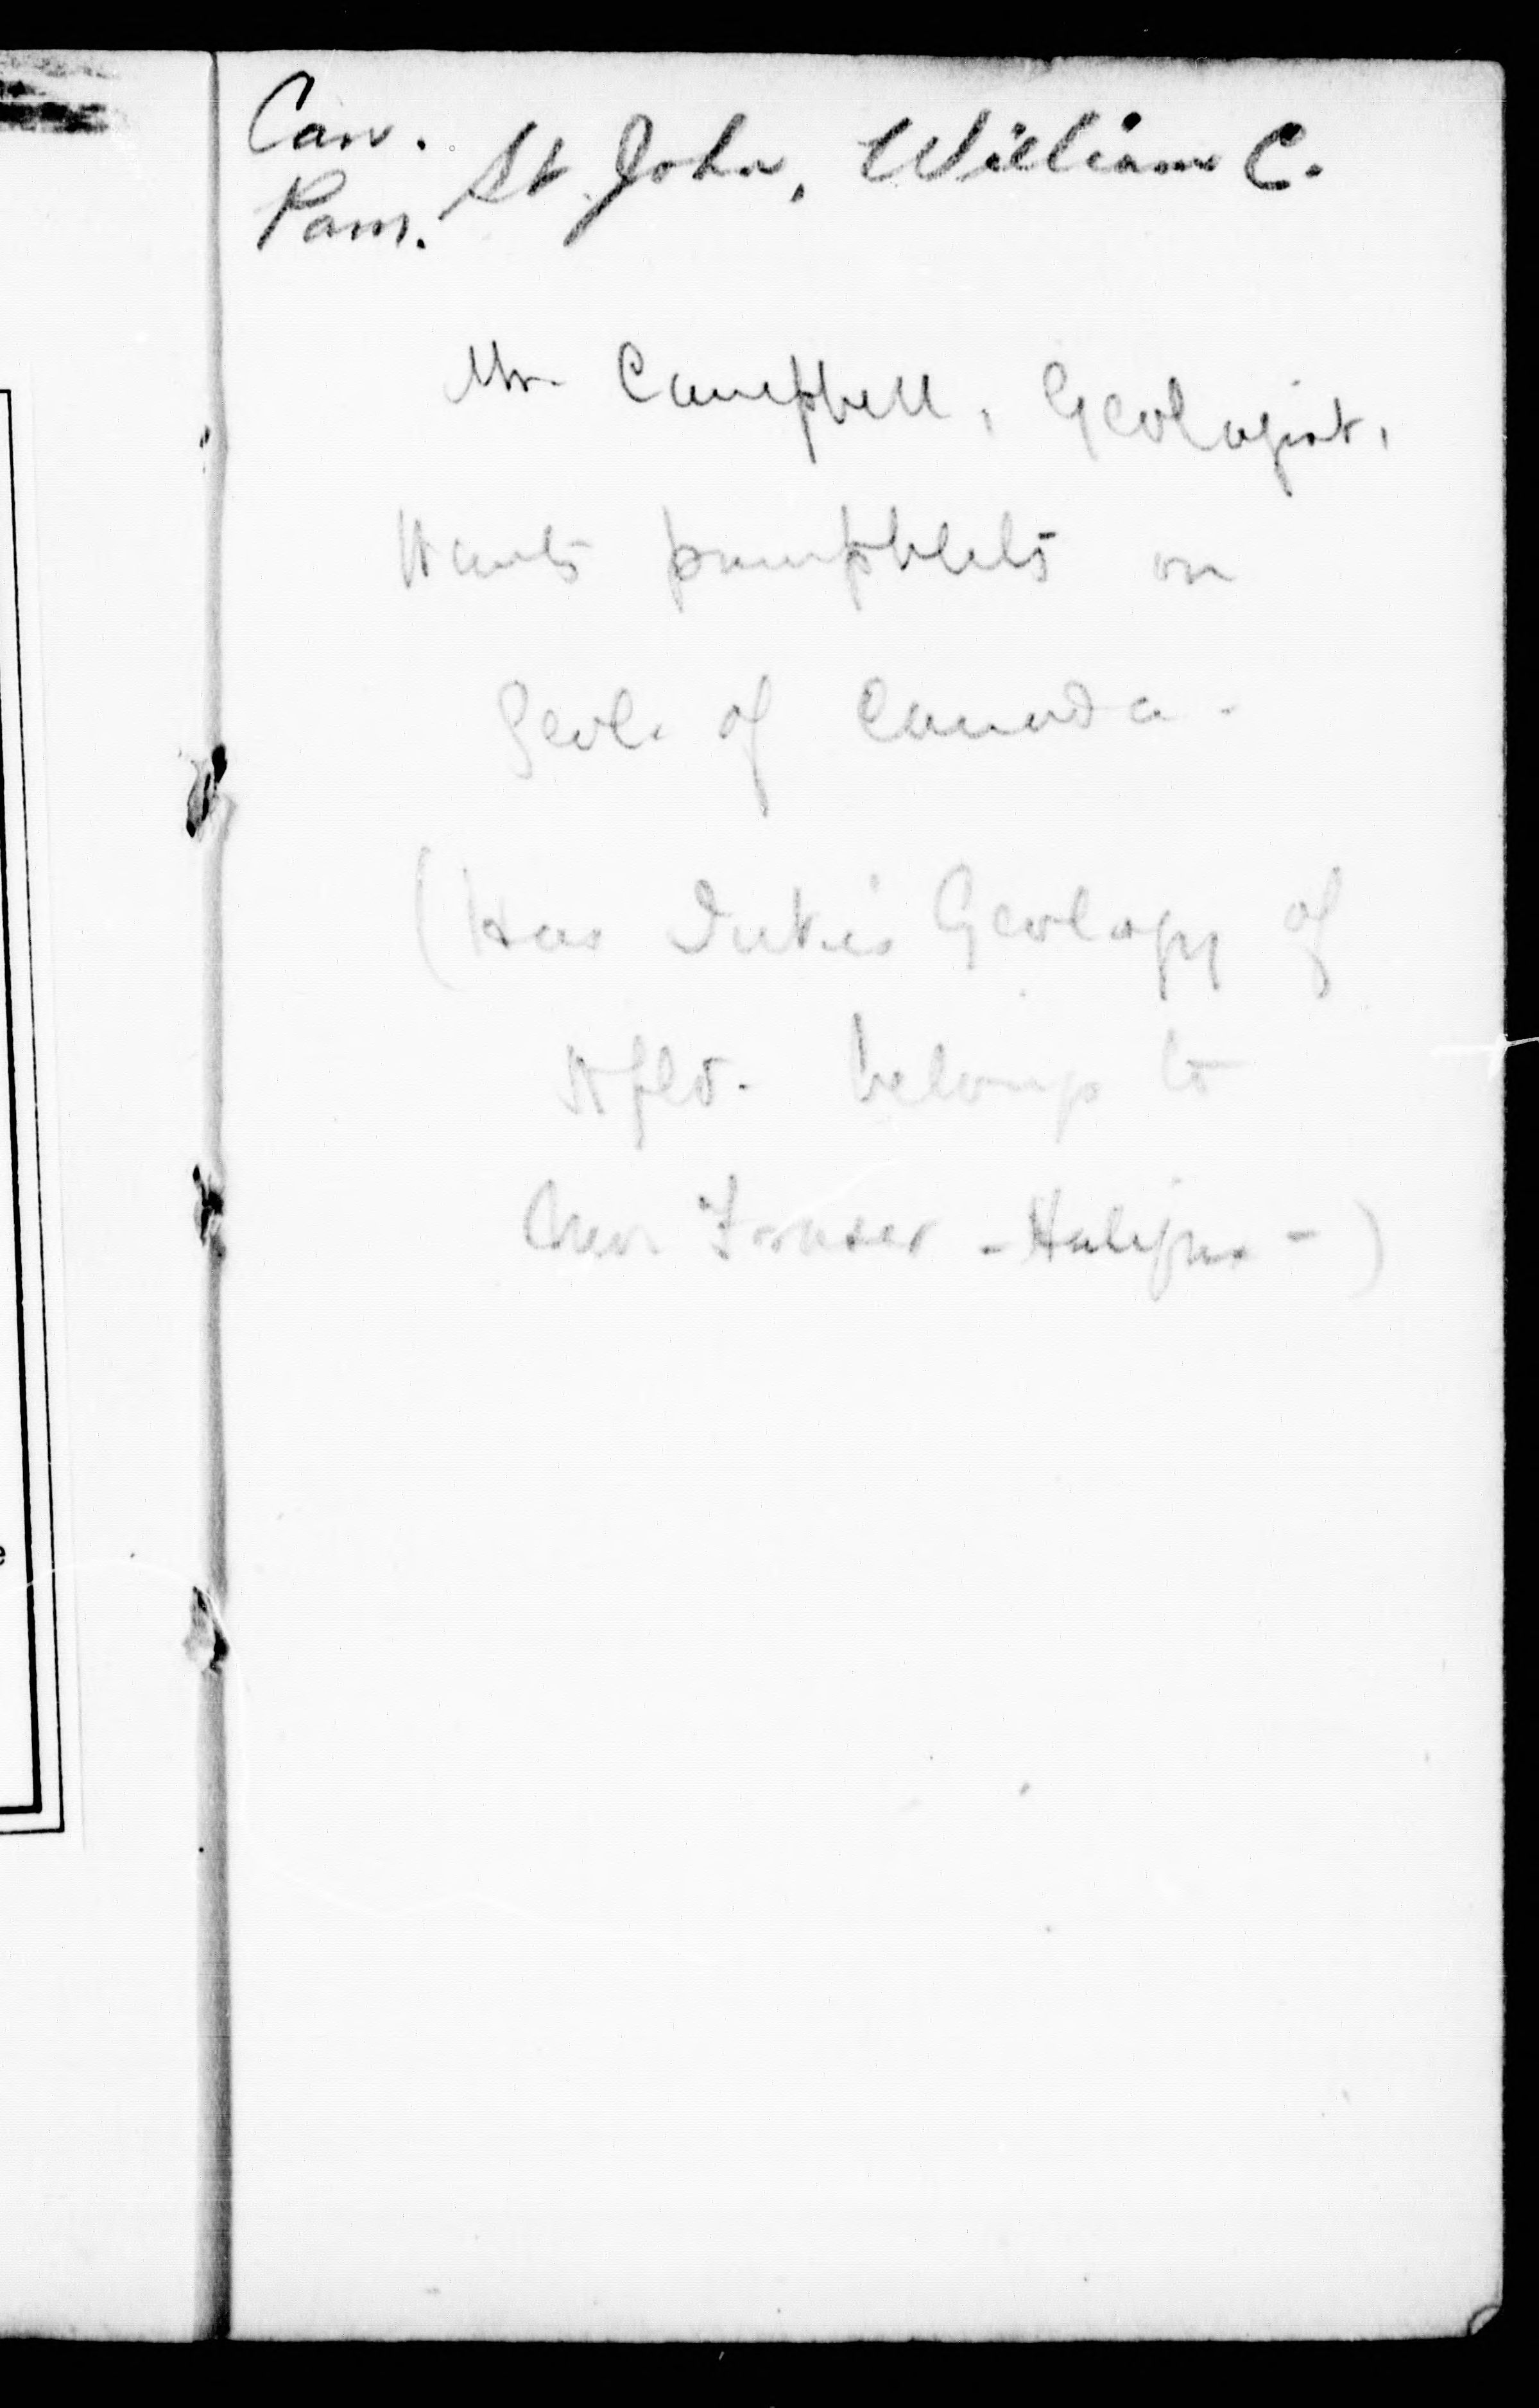 Can. St. John, William C.
Pam.
Mr Campbell, Geologist,
Wants pamphlets on
Geol. of Canada -
(Has Juke's Geology of
Nfld. belongs to
Fraser - Halifax - )